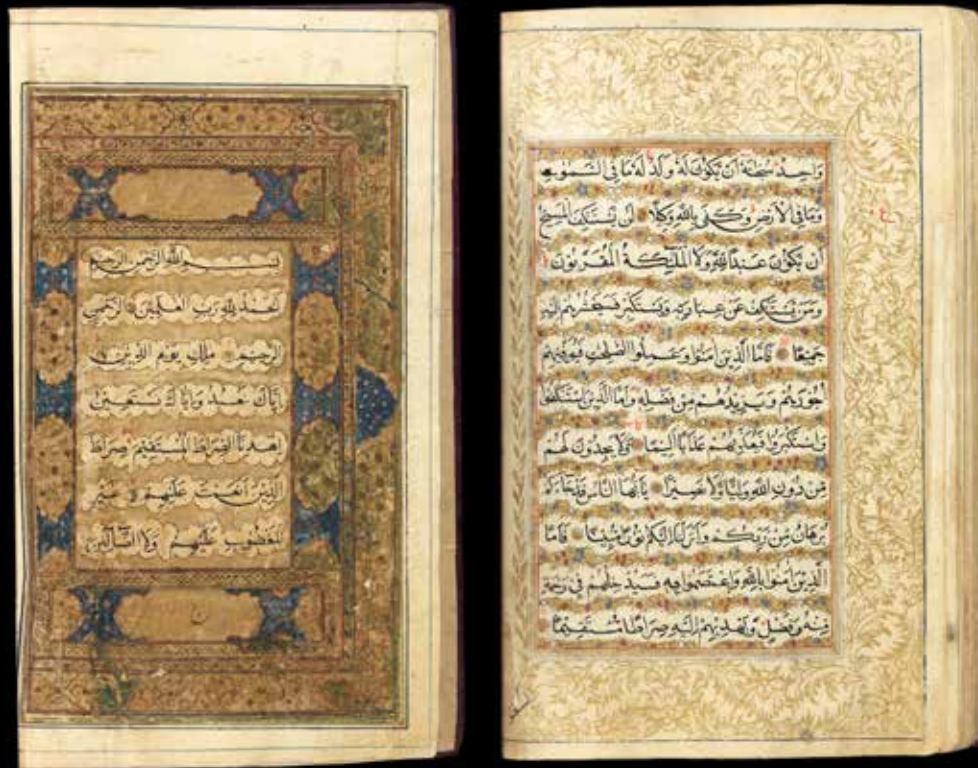 بسم الله الرحمن الرحيم
الحمد لله رب العلمين الرحمن
الرحيم ملك يوم الدين
اياك نعبد واياك نستعين
اهدنا الصراط المستقيم صراط
الذين انعمت عليهم غير
المغضوب عليهم ولا الضالين
واحد سبحنه ان يكون له ولد له ما في السموت
وما في الارض وكفى بالله وكيلا لن يستنكف المسيح
ان يكون عبدا لله ولا الملئكة المقربون
ومن يستنكف عن عبادته ويستكبر فسيحشرهم اليه
جميعا فاما الذين امنوا وعملوا الصلحت فيوفيهم
اجورهم ويزيدهم من فضله واما الذين استنكفوا
واستكبروا فيعذبهم عذابا اليما ولا يجدون لهم
من دون الله وليا ولا نصيرا يايها الناس قد جاءكم
برهان من ربكم وانزلنا اليكم نورا مبينا فاما
الذين امنوا بالله واعتصموا به فسيدخلهم في رحمة
منه وفضل ويهديهم اليه صراطا مستقيما
ع